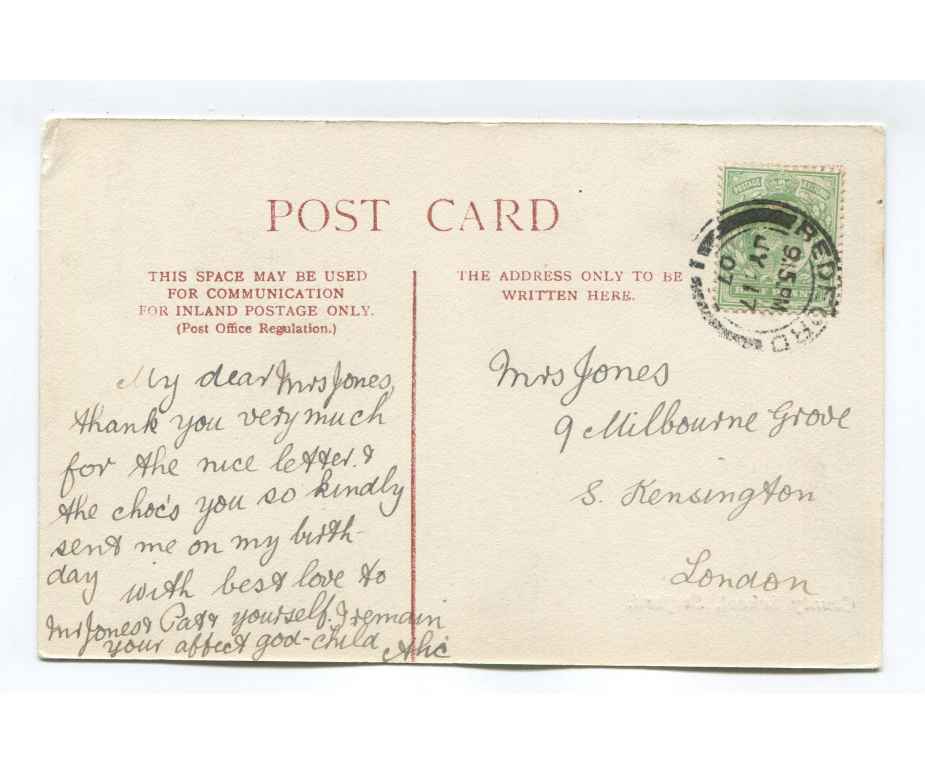 POST CARD
THIS SPACE MAY BE USED
FOR COMMUNICATION
FOR INLAND POSTAGE ONLY.
(Post Office Regulation.)
THE ADDRESS ONLY TO BE
WRITTEN HERE.
POSTAGE
BEDFORD
9.15 PM
JY 17
07
My dear Mrs Jones,
thank you very much
for the nice letter &
the choc's you so kindly
sent me on my birth-
day with best love to
Mr Jones & Pat & yourself. I remain
your affect god-child
Mrs Jones
9 Milbourne Grove
S. Kensington
London